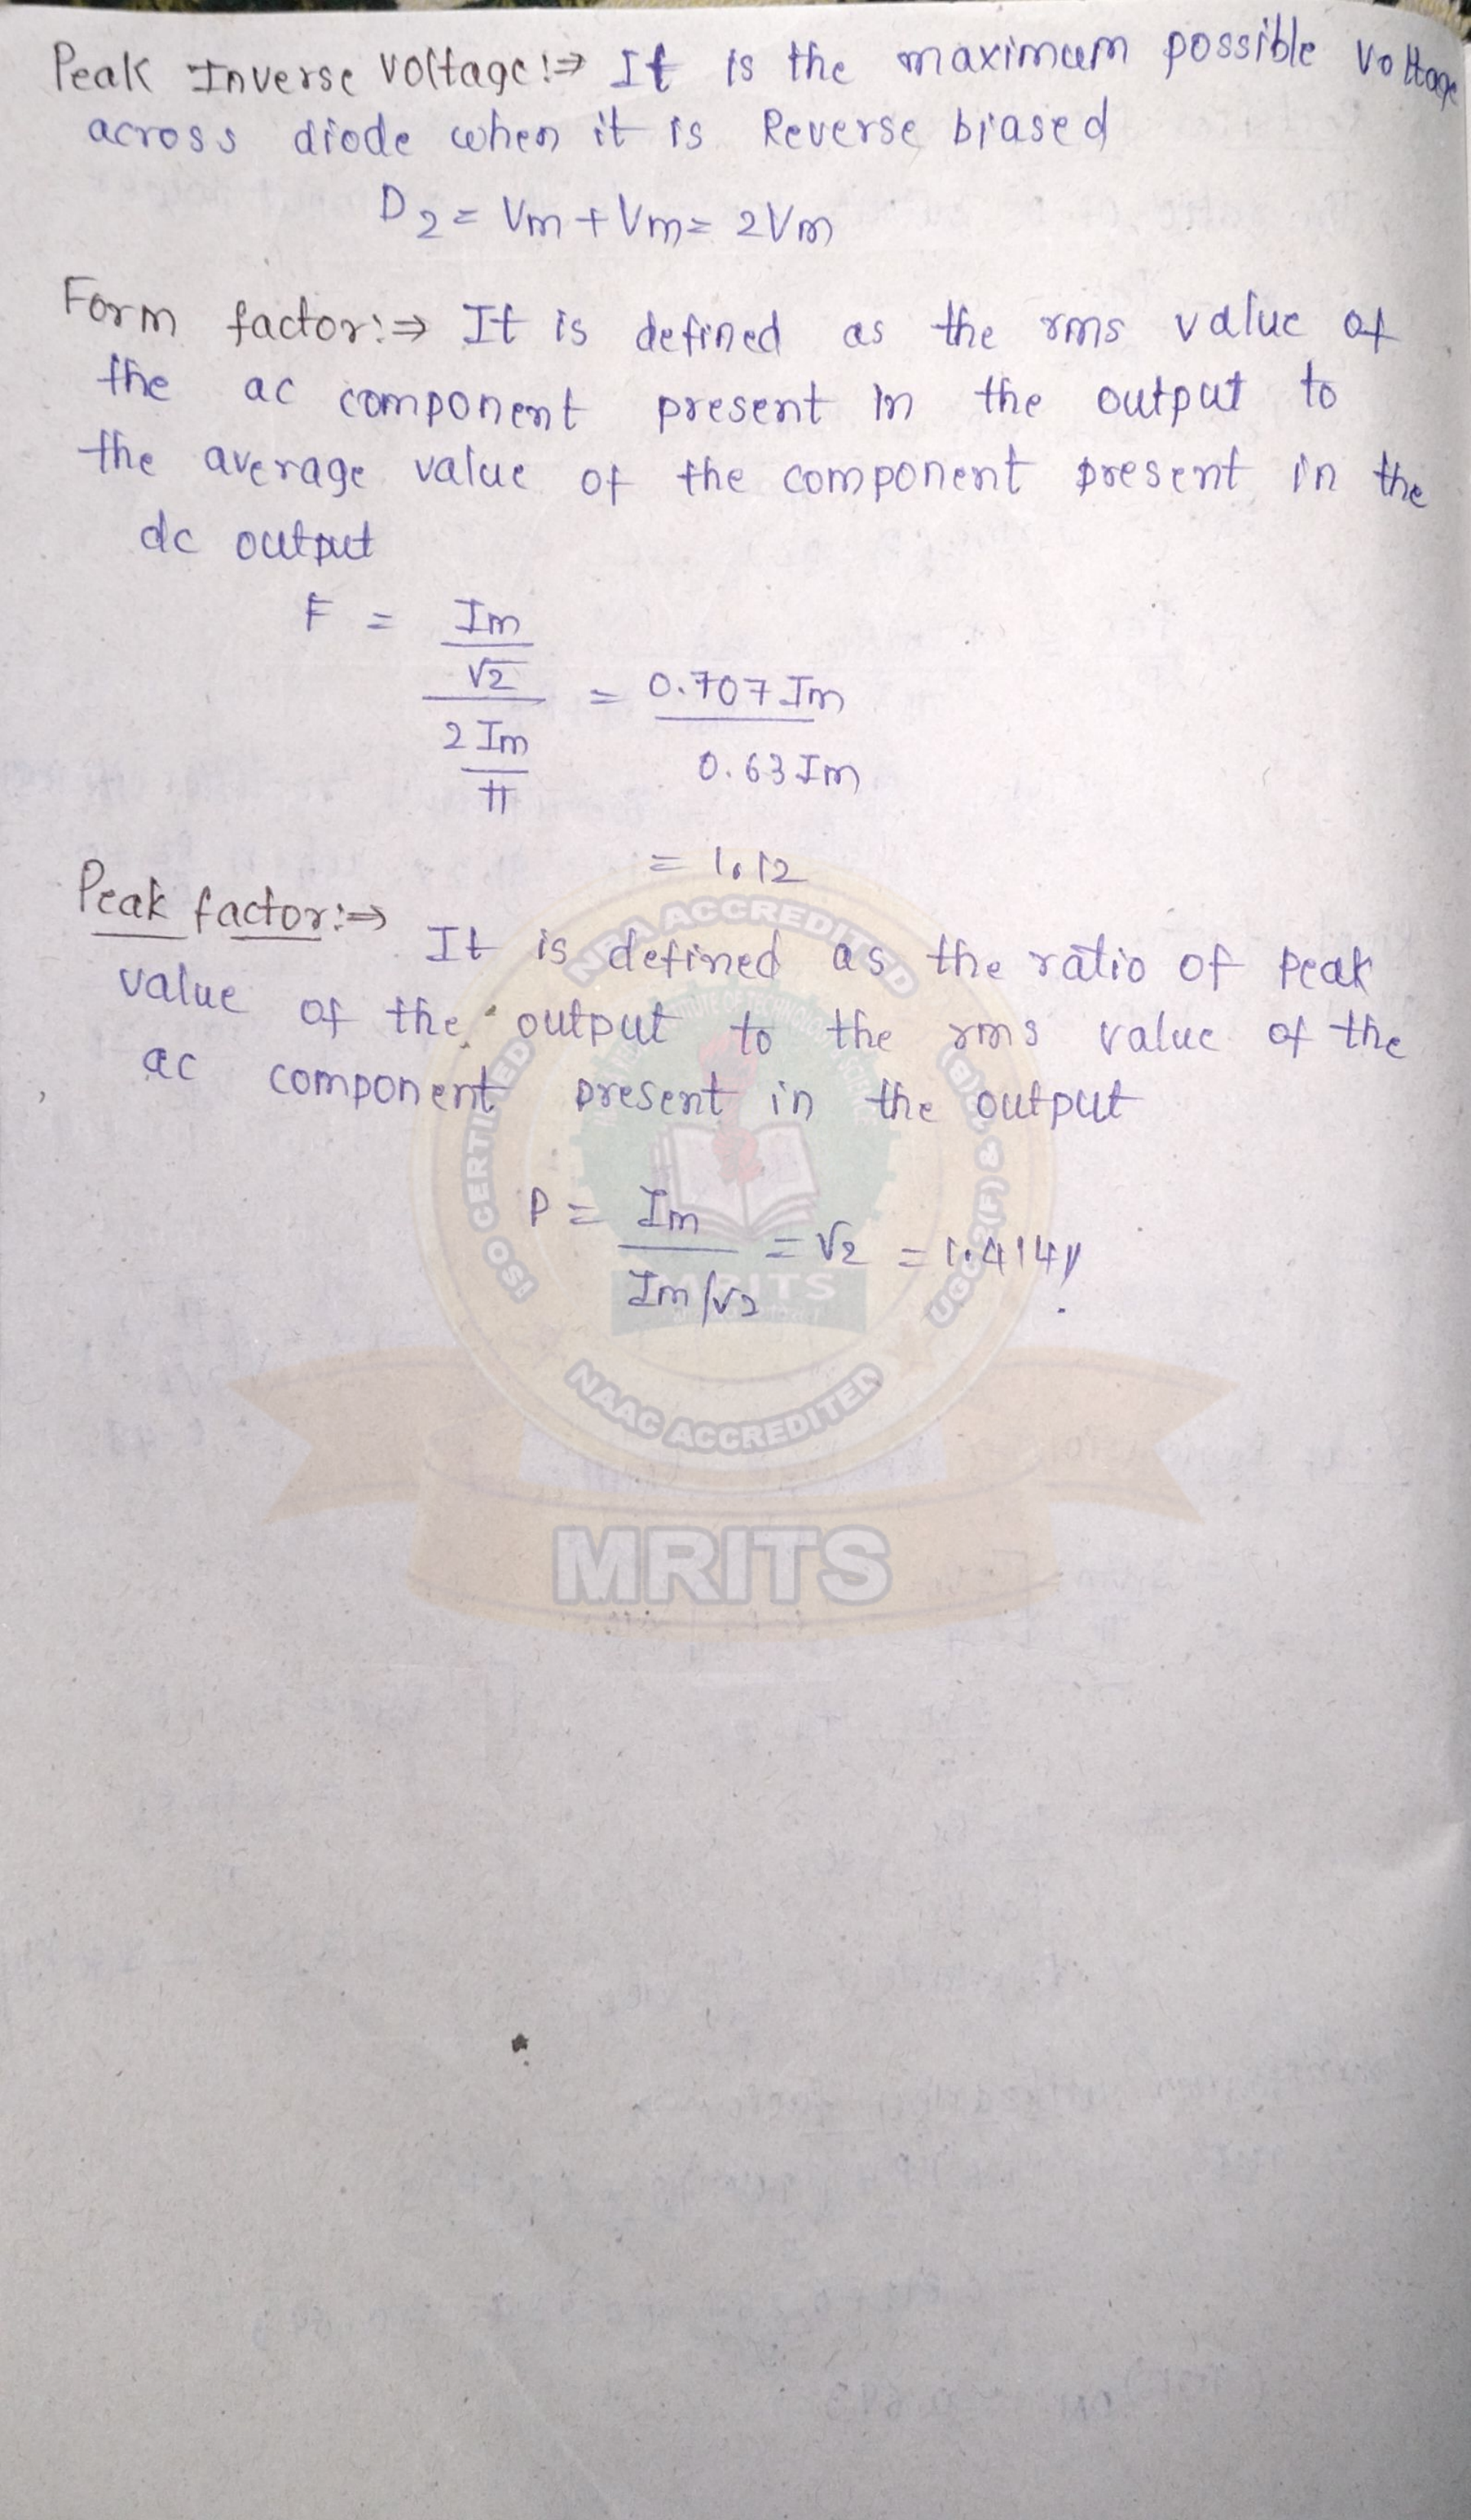 Peak Inverse Voltage:⇒ It is the maximum possible Voltage
across diode when it is Reverse biased
D2 = Vm + Vm = 2Vm
Form factor:⇒ It is defined as the rms value of
the ac component present in the output to
the average value of the component present in the
dc output
F = Im/√2 / 2Im/π = 0.707 Im / 0.63 Im
= 1.12
Peak factor:⇒ It is defined as the ratio of peak
value of the output to the rms value of the
ac component present in the output
P = Im / Im/√2 = √2 = 1.414
NBA ACCREDITED
ISO CERTIFIED
UGC 2(F) &
MRITS
NAAC ACCREDITED
MRITS